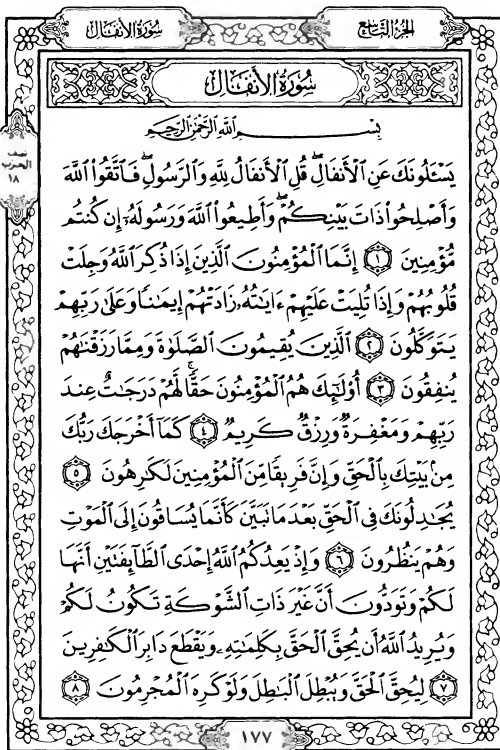 سُورَةُ الأَنفَال
الجُزْءُ التَّاسِعُ
سُورَةُ الأَنفَال
بِسْمِ اللَّهِ الرَّحْمَٰنِ الرَّحِيمِ
نصف
الحزب
١٨
يَسْـَٔلُونَكَ عَنِ ٱلْأَنفَالِۖ قُلِ ٱلْأَنفَالُ لِلَّهِ وَٱلرَّسُولِۖ فَٱتَّقُوا۟ ٱللَّهَ
وَأَصْلِحُوا۟ ذَاتَ بَيْنِكُمْۖ وَأَطِيعُوا۟ ٱللَّهَ وَرَسُولَهُۥٓ إِن كُنتُم
مُّؤْمِنِينَ ١ إِنَّمَا ٱلْمُؤْمِنُونَ ٱلَّذِينَ إِذَا ذُكِرَ ٱللَّهُ وَجِلَتْ
قُلُوبُهُمْ وَإِذَا تُلِيَتْ عَلَيْهِمْ ءَايَٰتُهُۥ زَادَتْهُمْ إِيمَٰنًا وَعَلَىٰ رَبِّهِمْ
يَتَوَكَّلُونَ ٢ ٱلَّذِينَ يُقِيمُونَ ٱلصَّلَوٰةَ وَمِمَّا رَزَقْنَٰهُمْ
يُنفِقُونَ ٣ أُو۟لَٰٓئِكَ هُمُ ٱلْمُؤْمِنُونَ حَقًّاۚ لَّهُمْ دَرَجَٰتٌ عِندَ
رَبِّهِمْ وَمَغْفِرَةٌ وَرِزْقٌ كَرِيمٌ ٤ كَمَآ أَخْرَجَكَ رَبُّكَ
مِنۢ بَيْتِكَ بِٱلْحَقِّ وَإِنَّ فَرِيقًا مِّنَ ٱلْمُؤْمِنِينَ لَكَٰرِهُونَ ٥
يُجَٰدِلُونَكَ فِى ٱلْحَقِّ بَعْدَ مَا تَبَيَّنَ كَأَنَّمَا يُسَاقُونَ إِلَى ٱلْمَوْتِ
وَهُمْ يَنظُرُونَ ٦ وَإِذْ يَعِدُكُمُ ٱللَّهُ إِحْدَى ٱلطَّآئِفَتَيْنِ أَنَّهَا
لَكُمْ وَتَوَدُّونَ أَنَّ غَيْرَ ذَاتِ ٱلشَّوْكَةِ تَكُونُ لَكُمْ
وَيُرِيدُ ٱللَّهُ أَن يُحِقَّ ٱلْحَقَّ بِكَلِمَٰتِهِۦ وَيَقْطَعَ دَابِرَ ٱلْكَٰفِرِينَ
٧ لِيُحِقَّ ٱلْحَقَّ وَيُبْطِلَ ٱلْبَٰطِلَ وَلَوْ كَرِهَ ٱلْمُجْرِمُونَ ٨
١٧٧